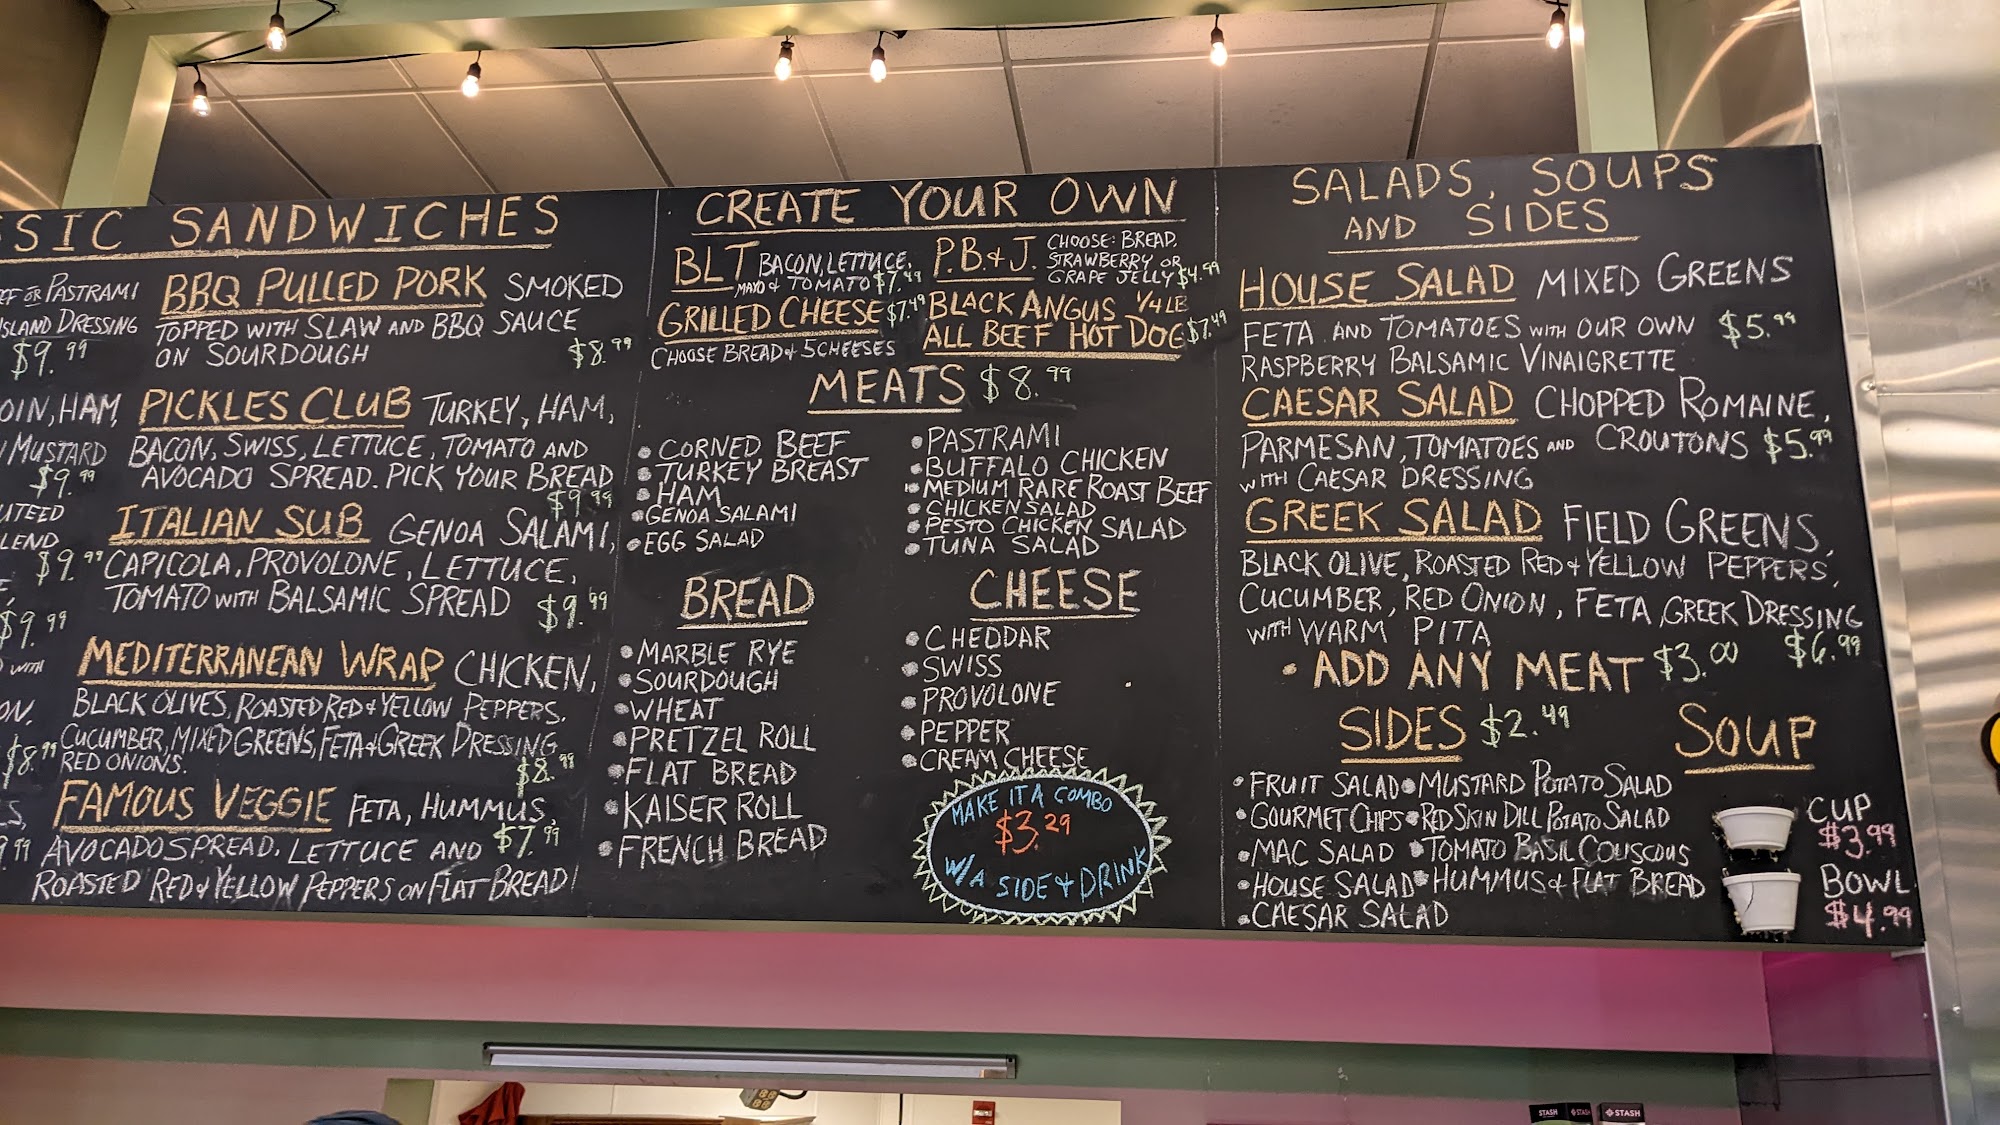 SIC SANDWICHES
OR PASTRAMI
ISLAND DRESSING
$9.99
OIN, HAM,
MUSTARD
$9.99
LEND
$9.99
$9.99
WITH
ON,
$8.99
BBQ PULLED PORK SMOKED
TOPPED WITH SLAW AND BBQ SAUCE
ON SOURDOUGH $8.99
PICKLES CLUB TURKEY, HAM,
BACON, SWISS, LETTUCE, TOMATO AND
AVOCADO SPREAD. PICK YOUR BREAD
$9.99
ITALIAN SUB GENOA SALAMI,
CAPICOLA, PROVOLONE, LETTUCE,
TOMATO WITH BALSAMIC SPREAD $9.99
MEDITERRANEAN WRAP CHICKEN,
BLACK OLIVES, ROASTED RED & YELLOW PEPPERS.
CUCUMBER, MIXED GREENS, FETA & GREEK DRESSING
RED ONIONS. $8.99
FAMOUS VEGGIE FETA, HUMMUS,
AVOCADO SPREAD. LETTUCE AND $7.99
ROASTED RED & YELLOW PEPPERS ON FLAT BREAD!
CREATE YOUR OWN
BLT BACON, LETTUCE,
MAYO & TOMATO $7.49
P.B.&J. CHOOSE: BREAD,
STRAWBERRY OR
GRAPE JELLY $4.99
GRILLED CHEESE $7.49
CHOOSE BREAD & 5 CHEESES
BLACK ANGUS 1/4 LB
ALL BEEF HOT DOG $7.49
MEATS $8.99
• CORNED BEEF
• TURKEY BREAST
• HAM
• GENOA SALAMI
• EGG SALAD
• PASTRAMI
• BUFFALO CHICKEN
• MEDIUM RARE ROAST BEEF
• CHICKEN SALAD
• PESTO CHICKEN SALAD
• TUNA SALAD
BREAD
• MARBLE RYE
• SOURDOUGH
• WHEAT
• PRETZEL ROLL
• FLAT BREAD
• KAISER ROLL
• FRENCH BREAD
CHEESE
• CHEDDAR
• SWISS
• PROVOLONE
• PEPPER
• CREAM CHEESE
MAKE IT A COMBO
$3.29
W/A SIDE & DRINK
SALADS, SOUPS
AND SIDES
HOUSE SALAD MIXED GREENS
FETA AND TOMATOES WITH OUR OWN $5.99
RASPBERRY BALSAMIC VINAIGRETTE
CAESAR SALAD CHOPPED ROMAINE,
PARMESAN, TOMATOES AND CROUTONS $5.99
WITH CAESAR DRESSING
GREEK SALAD FIELD GREENS,
BLACK OLIVE, ROASTED RED & YELLOW PEPPERS,
CUCUMBER, RED ONION, FETA, GREEK DRESSING
WITH WARM PITA $6.99
• ADD ANY MEAT $3.00
SIDES $2.49
• FRUIT SALAD • MUSTARD POTATO SALAD
• GOURMET CHIPS • RED SKIN DILL POTATO SALAD
• MAC SALAD • TOMATO BASIL COUSCOUS
• HOUSE SALAD • HUMMUS & FLAT BREAD
• CAESAR SALAD
SOUP
CUP
$3.99
BOWL
$4.99
STASH
STASH